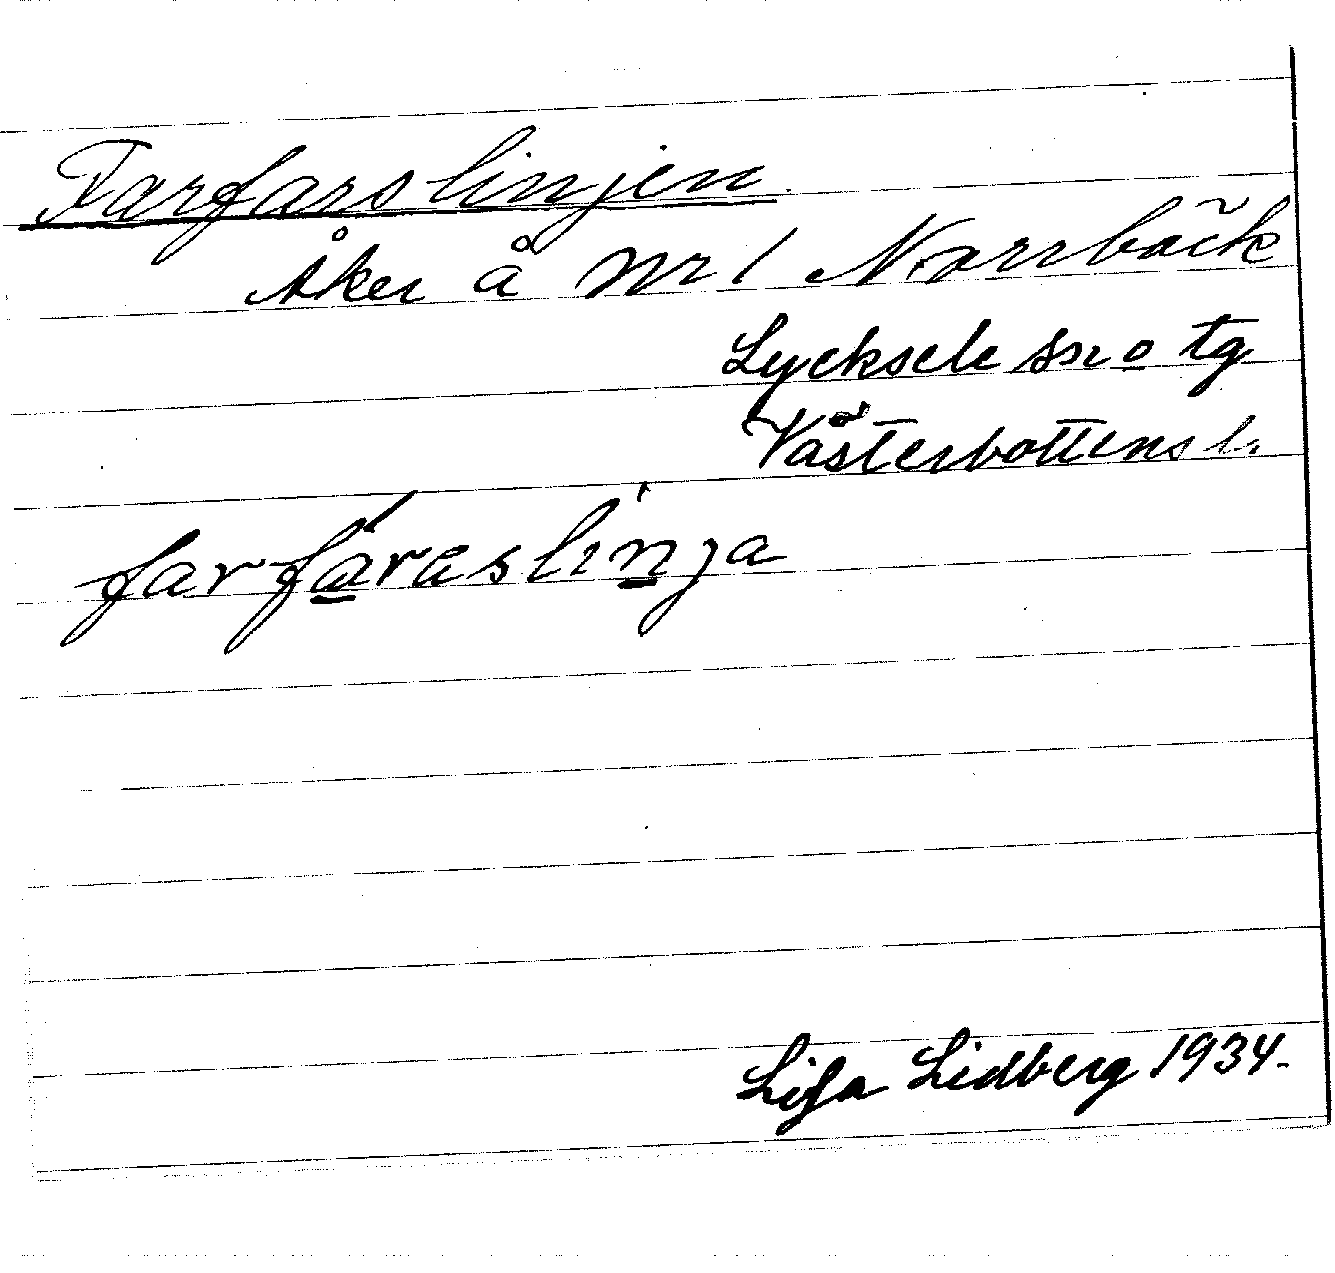 Farfarslinjen
Åker å nr 1 Norrbäck
Lycksele sn o tg
Västerbottens l.
farfáraslinja
Lisa Lidberg 1934.